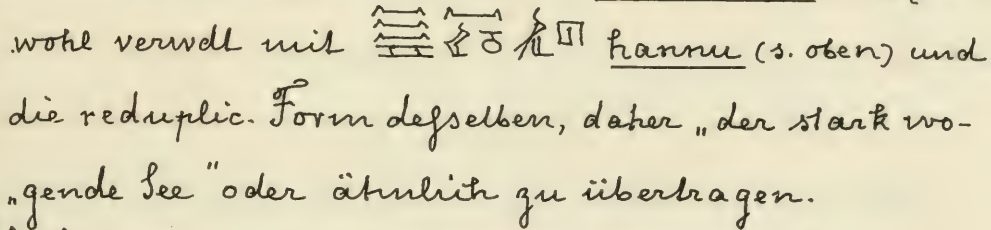 wohl verwdt mit hannu (s. oben) und
die reduplic. Form deſselben, daher „der stark wo-
„gende See" oder ähnlich zu übertragen.